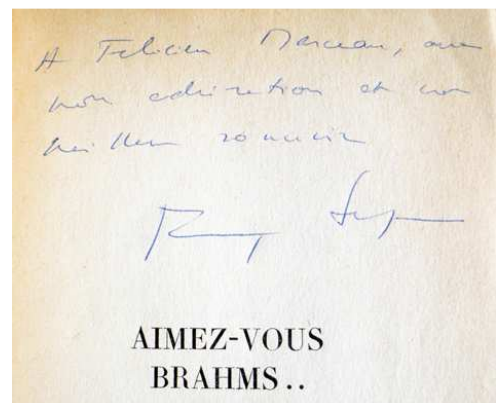 A Félicien Marceau, avec
mon admiration et mon
meilleur souvenir
Françoise Sagan
AIMEZ-VOUS
BRAHMS..